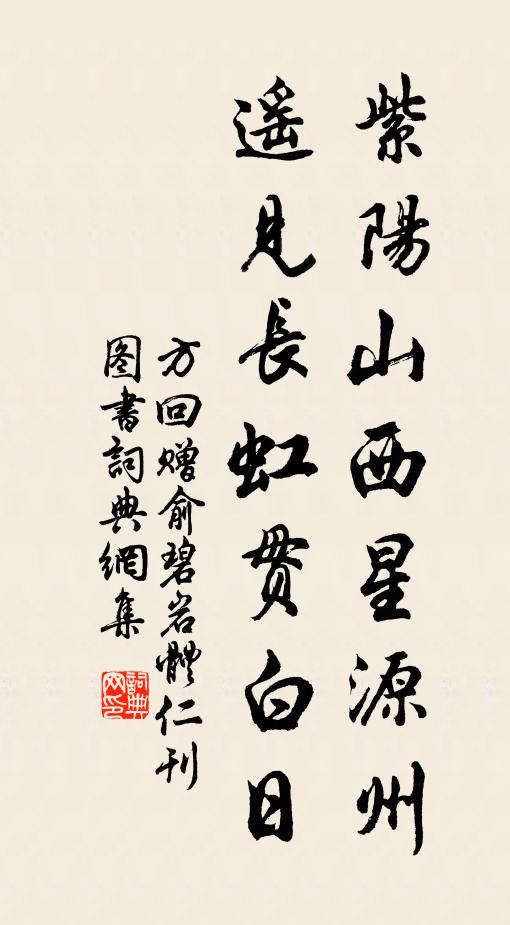 紫陽山西星源州
遥見長虹贯白日
方回赠俞碧岩體仁刊
图書詞典網集
詞典网印